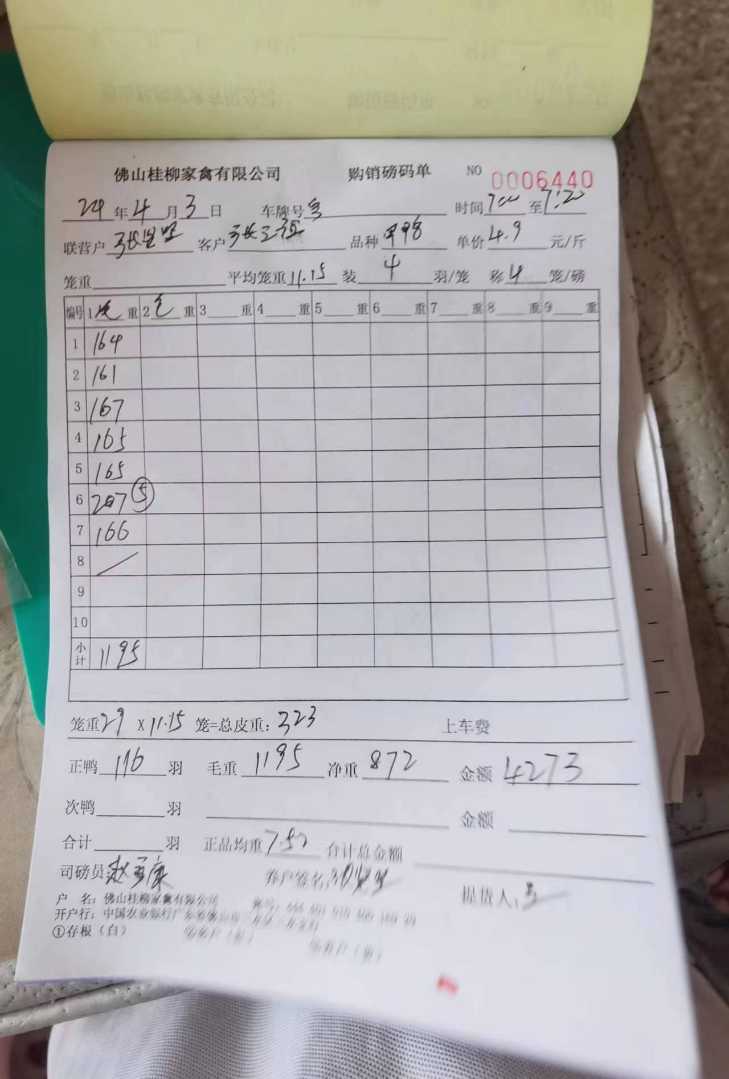 佛山桂柳家禽有限公司 购销磅码单 NO 0006440
24年4月3日 车牌号 时间7:00至7:20
联营户 客户 品种 单价4.9元/斤
笼重 平均笼重11.15 装4羽/笼 称4笼/磅
编号 1 重 2 重 3 重 4 重 5 重 6 重 7 重 8 重 9 重
1 164
2 161
3 167
4 165
5 165
6 207 ⑤
7 166
8 /
9
10
小计 1195
笼重29 x 11.15 笼=总皮重:323 上车费
正鸭116羽 毛重1195 净重872 金额4273
次鸭 羽 金额
合计 羽 正品均重7.52 合计总金额
司磅员 养户签名: 提货人:
户 名:佛山桂柳家禽有限公司
开户行:中国农业银行广东
①存根(白)